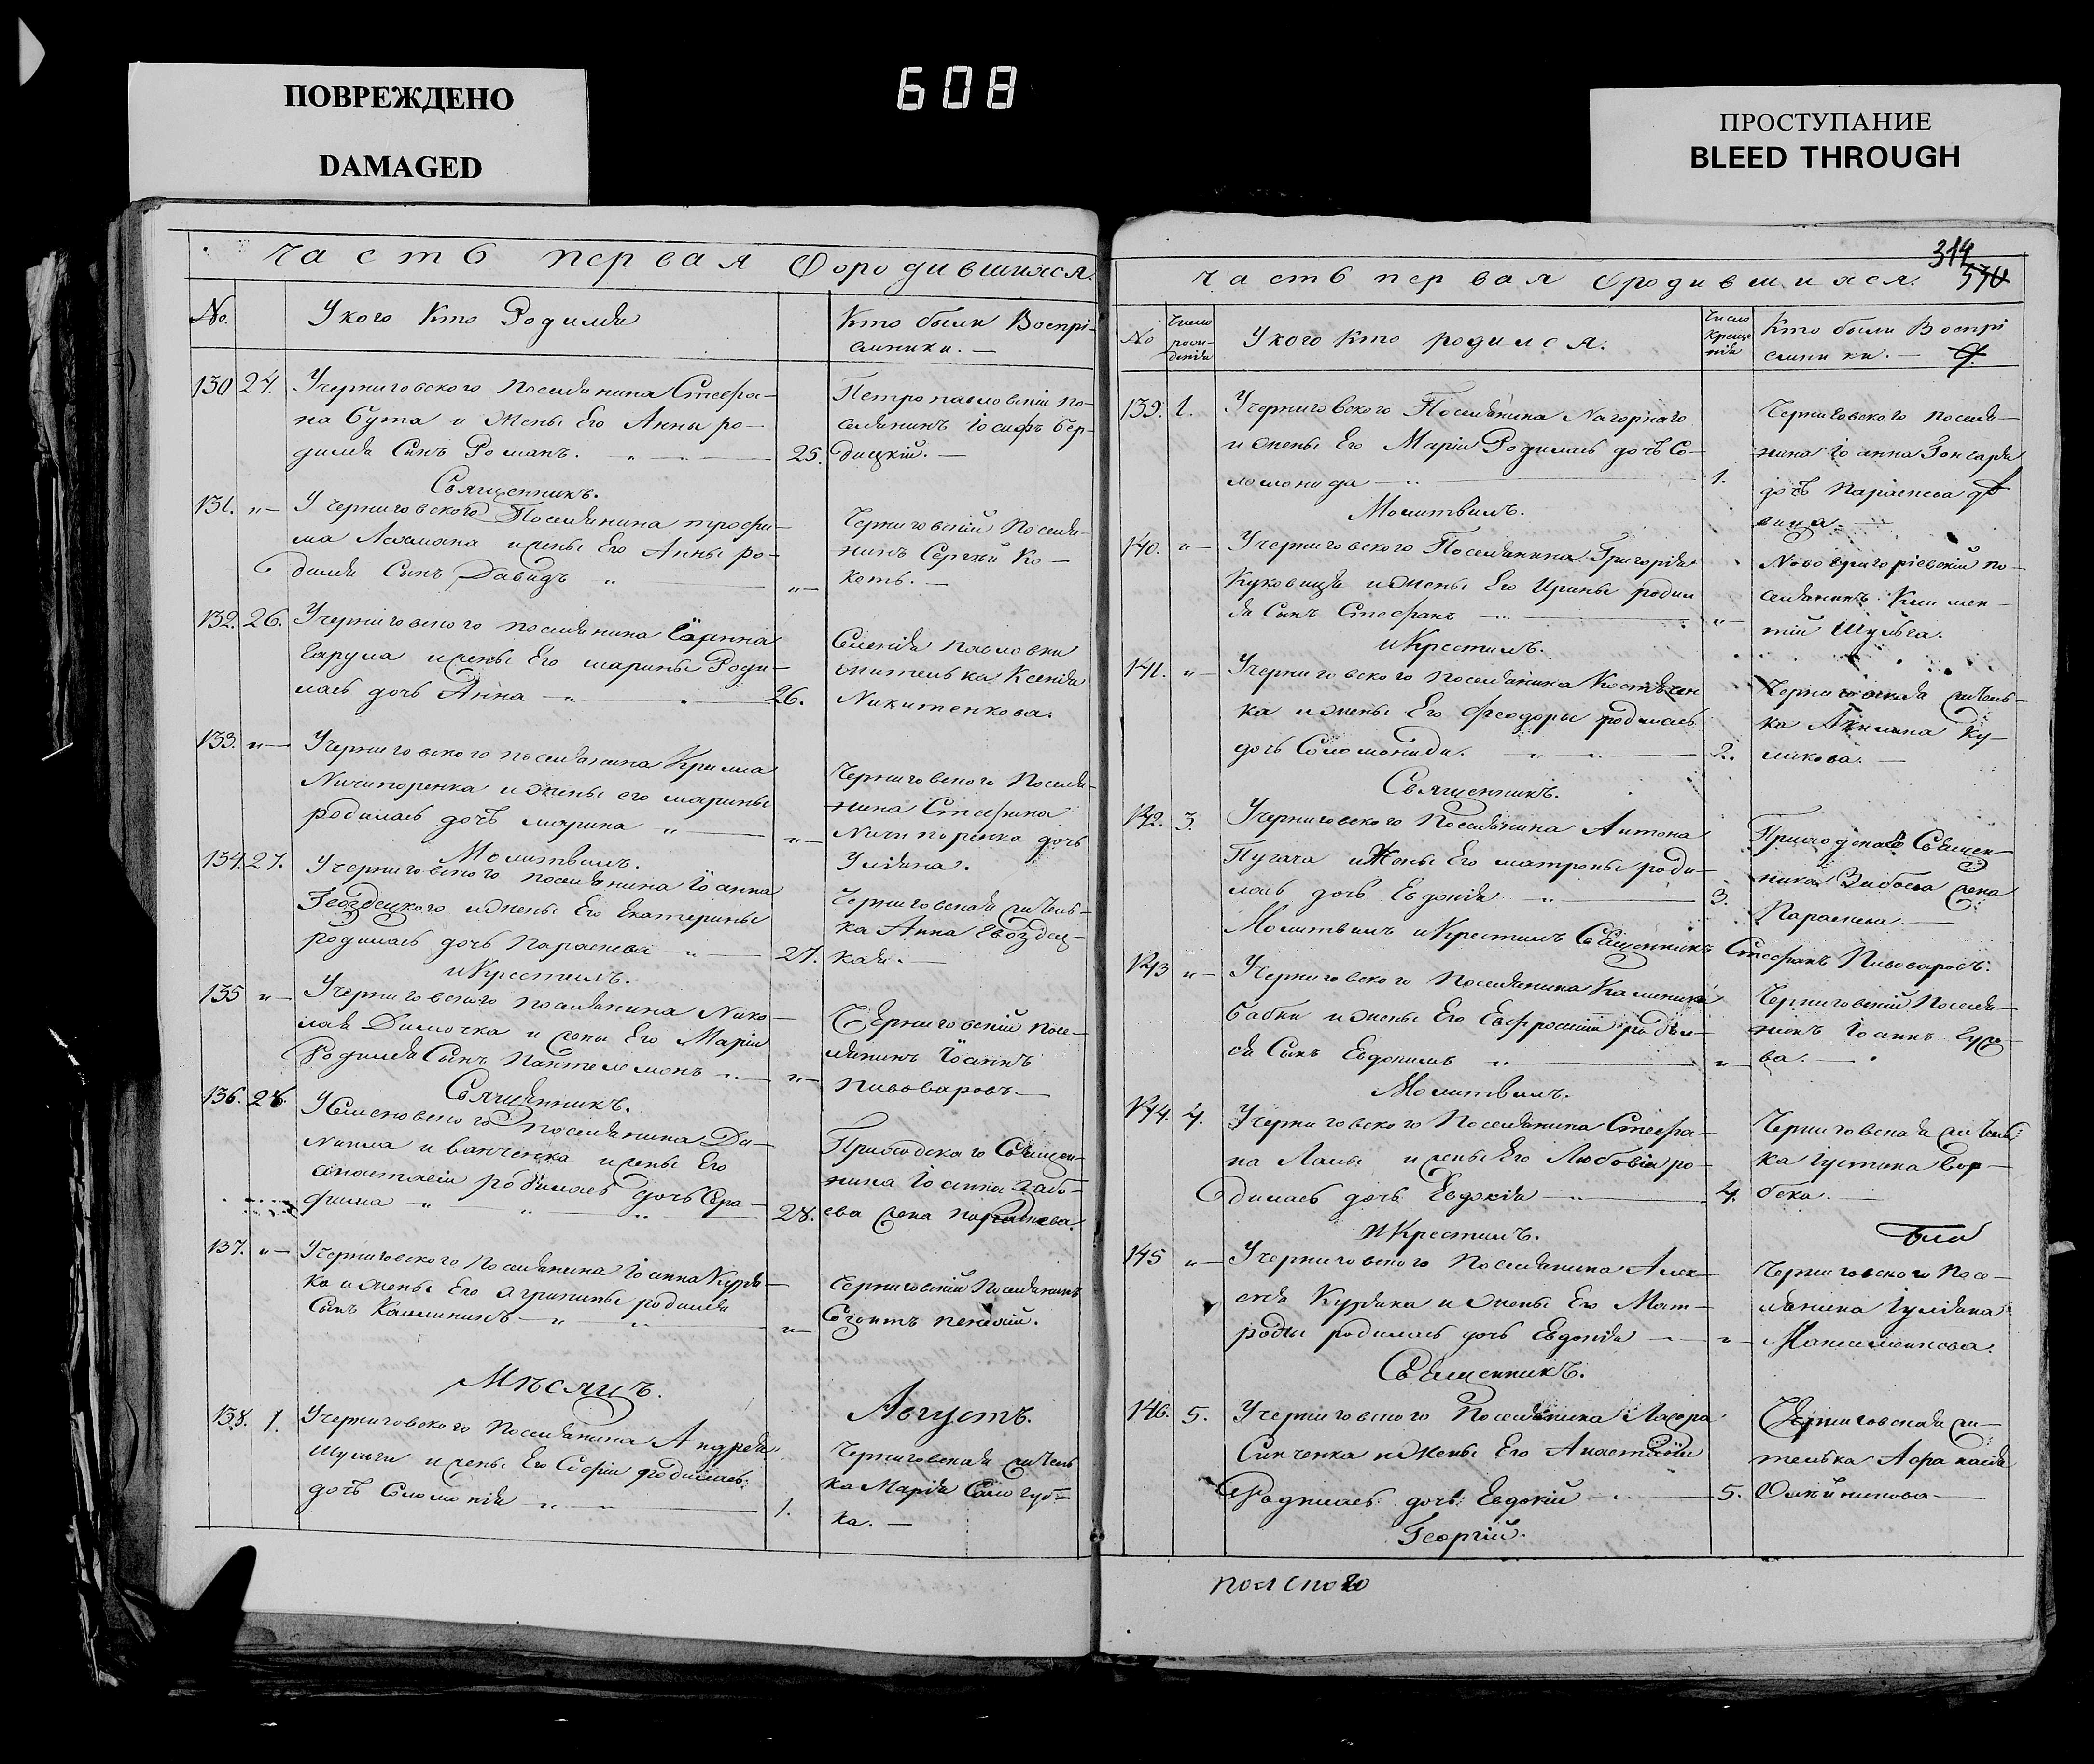 ПОВРЕЖДЕНО
DAMAGED
608
ПРОСТУПАНИЕ
BLEED THROUGH
часть первая Ородившихся.
No. Укого Кто Родился Кто были Воспрі-
емники. —
130 24. Учерниговского Поселянина Стефа-
на Бута и Жены Его Анны ро-
дился Сынъ Романъ. 25.
Петропавловскій по-
селянинъ Іосифъ бер-
дицкій. —
Священникъ.
131. „— Учерниговского Поселянина трофи-
ма и жены Его Анны ро-
дился Сынъ Давидъ „ „—
Черниговскій Поселя-
нинъ Сергей Ко-
коть. —
132. 26. Учерниговского поселянина Іоанна
и жены Его марины Роди-
лась дочь Анна — „ 26.
Ксенія
Никитенкова.
133. „— Учерниговского поселянина Кирила
Ничипоренка и жены его марины
родилась дочь марина „ „—
Черниговского Поселя-
нина Стефана
Ничипоренка дочь
Уліяна.
Молитвилъ.
134. 27. Учерниговского поселянина Іоанна
Гвоздецкого и жены Его Екатерины
родилась дочь Параскева — „ 27.
Черниговская житель-
ка Анна Гвоздец-
кая. —
и Крестилъ.
135 „— Учерниговского поселянина Нико-
лая Димочка и жены Его Маріи
Родился Сынъ Пантелимонъ „—
Черниговскій посе-
лянинъ Іоаннъ
Пивоваровъ —
Священникъ.
136. 28. Усеменовского поселянина Да-
нила Иванченка и жены Его
анастасіи родилась дочь Сера-
фима — „ „ 28.
Приходского Священ-
ника Іоанна Забо-
ева жена параскева.
137. „— Учерниговского Поселянина Іоанна Куря-
ка и жены Его Агрипины родился
Сынъ Каллиникъ — „ „—
Черниговскій Поселянинъ
Мѣсяцъ. Августъ.
138. 1. Учерниговского Поселянина Андрея
Шульги и жены Его Софіи родилась
дочь Соломонія — „ 1.
Черниговская житель
ка Марія Сологуб-
ка. —
314
570
часть первая Ородившихся.
No Число рожденія Укого кто родился. Число Крещенія Кто были Воспрі
емники. —
139. 1. Учерниговского Поселянина Нагорнаго
и жены Его Маріи Родилась дочь Со-
ломонида — 1.
Черниговского поселя-
нина Іоанна Гончаря
дочь Параскева дѣ
вица. —
Молитвилъ.
140. „— Учерниговского Поселянина Григорія
Куковици и жены Его Ирины родил
ся Сынъ Стефанъ — „—
Новогригоріевскій по-
селянинъ Климен-
тій Шульга.
и Крестилъ.
141. „— Учерниговского поселянина Костючен
ка и жены Его Феодоры родилась
дочь Соломонида. 2.
Черниговская житель-
ка Акилина Ку-
ликова. —
Священникъ.
142. 3. Учерниговского Поселянина Антона
Пугача и Жоны Его матроны роди-
лась дочь Евдокія „ 3.
Приходского Священ-
ника Забоева жена
Параскева. —
Молитвилъ и Крестилъ Священникъ Стефанъ Пивоваровъ.
143 „— Учерниговского Поселянина Калиника
Бабки и жены Его Евфросиніи родил-
ся Сынъ Евдокимъ „ „—
Черниговскій Поселя-
нинъ Іоаннъ
ва. —
Молитвилъ.
144. 4. Учерниговского Поселянина Стефа-
на Ламы и жены Его Любовіи ро-
дилась дочь Евдокія — 4.
Черниговская житель-
ка Іустина Вор-
бска. —
и Крестилъ.
145 „— Учерниговского Поселянина Алек-
сія Куряка и жены Его Мат-
роны родилась дочь Евдокія — „—
Черниговского Посе-
лянина Іуліана
Максименкова.
Священникъ.
146. 5. Учерниговского Поселянина Лазора
Синченка и жены Его Анастасіи
Родилась дочь Евдокія 5.
Черниговская жи-
телька Афанасія
Олейникова —
Георгій.